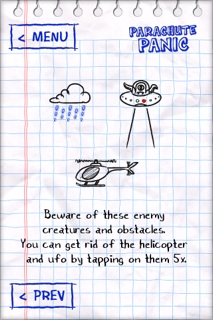 < MENU
PARACHUTE
PANIC
Beware of these enemy
creatures and obstacles.
You can get rid of the helicopter
and ufo by tapping on them 5x.
< PREV